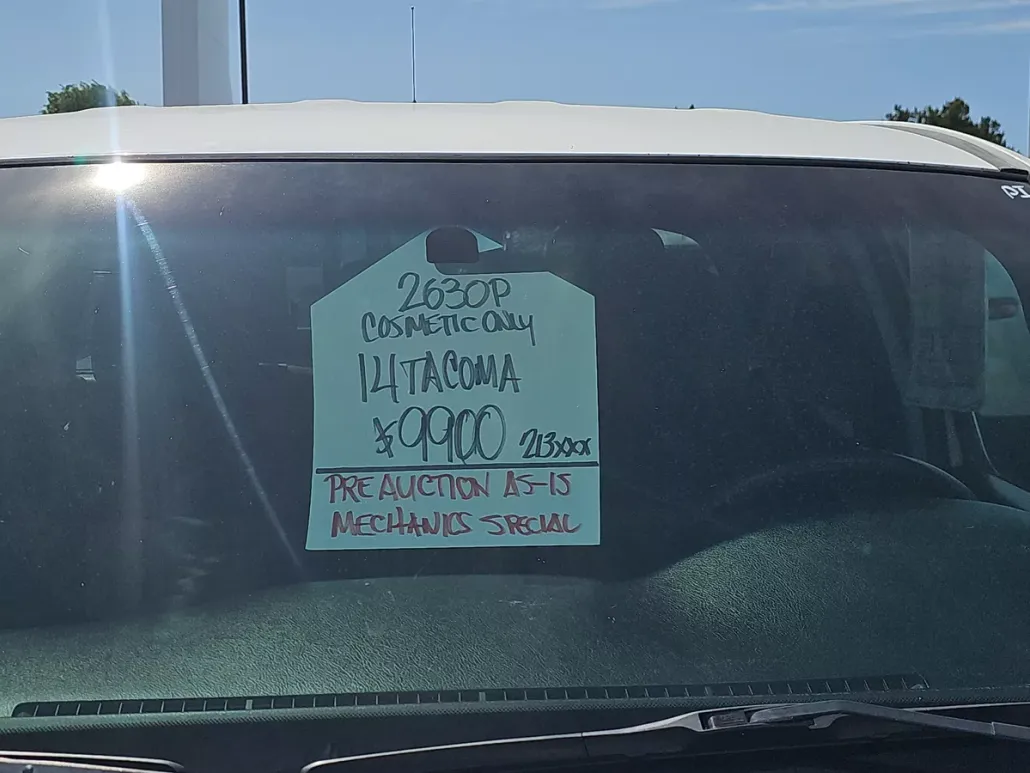 2630P
COSMETIC ONLY
14 TACOMA
$9900 213xxx
PRE AUCTION AS-IS
MECHANICS SPECIAL